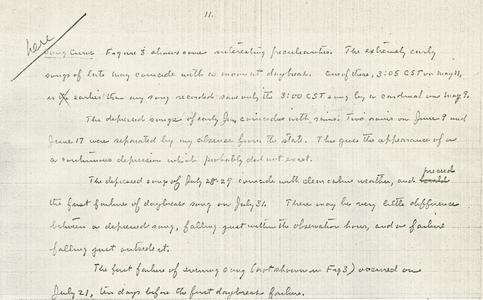 11.
here
Song Curve Figure 3 shows some interesting peculiarities. The extremely early
songs of late May coincide with a moon at daybreak. One of these, 3:05 CST on May 11,
is earlier than any song recorded save only the 3:00 CST song by a cardinal on May 9.
The depressed songs of early June coincided with rains. Two rains on June 9 and
June 17 were separated by my absence from the state. This gives the appearance of
a continuous depression which probably did not exist.
The depressed songs of July 28-29 coincide with clear calm weather, and preceed
the first failure of daybreak song on July 31. There may be very little difference
between a depressed song, falling just within the observation hour, and a failure
falling just outside it.
The first failure of evening song (not shown in Fig 3) occurred on
July 21, ten days before the first daybreak failure.